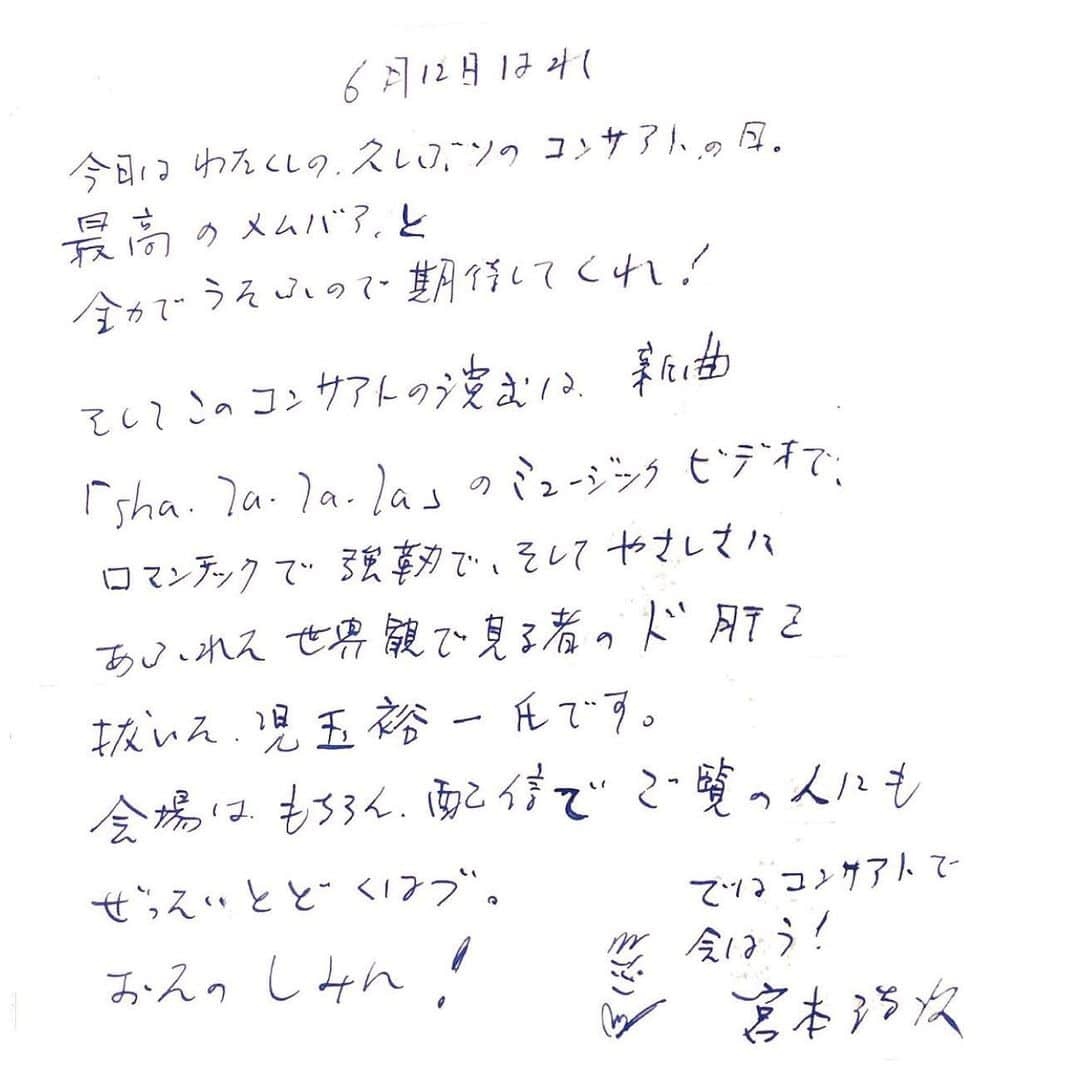 6月12日はれ
今日はわたくしの、久しぶりのコンサアト、の日。
最高のメムバア、と
全力でうたふので期待してくれ!
そしてこのコンサアトの演出は、新曲
「sha・la・la・la」のミュージックビデオで、
ロマンチックで強靭で、そしてやさしさに
あふれた世界観で見る者のド肝を
抜いた、児玉裕一氏です。
会場はもちろん、配信でご覧の人にも
ぜったいとどくはづ。
おたのしみに!
ではコンサアトで
会はう!
宮本浩次